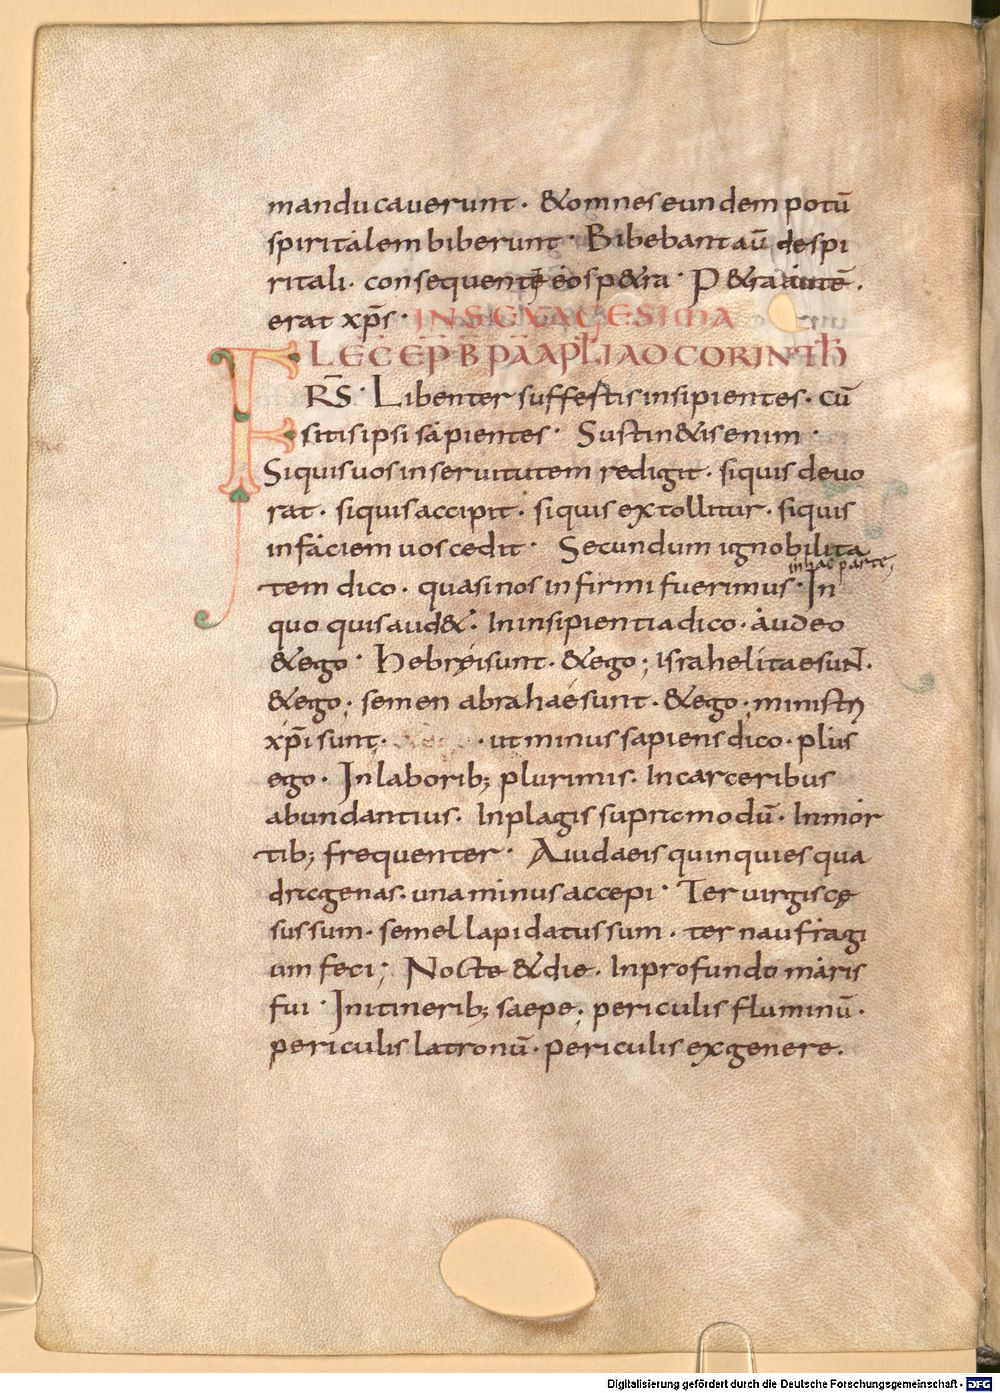 manducauerunt· &omnes eundem potū
spiritalem biberunt· Bibebant aū despi
ritali· consequente eos p&ra· P&ra autē·
erat xp̄s· IN SEXAGESIMA
LEC EP B PA APLI AD CORINTH
FRS̄· Libenter suffestis insipientes· cū
sitis ipsi sapientes· Sustin&is enim·
Siquis uos in seruitutem redigit· siquis deuo
rat· siquis accipit· siquis extollitur· siquis
in faciem uos cedit· Secundum ignobilita
in hac parte,
tem dico· quasi nos infirmi fuerimus· In
quo quis aud&· In insipientia dico· audeo
&ego· Hebrei sunt· &ego; israhelitae suN̄·
&ego; semen abrahae sunt· &ego; ministri
xp̄i sunt· &ego· ut minus sapiens dico· plus
ego· In laborib; plurimis· In carceribus
abundantius· In plagis supra modū· In mor
tib; frequenter· A iudaeis quinquies qua
dragenas· una minus accepi· Ter uirgis cę
sus sum· semel lapidatus sum· ter naufragi
um feci; Nocte &die· In profundo maris
fui· In itinerib; saepe; periculis fluminū·
periculis latronū· periculis ex genere·
Digitalisierung gefördert durch die Deutsche Forschungsgemeinschaft - DFG